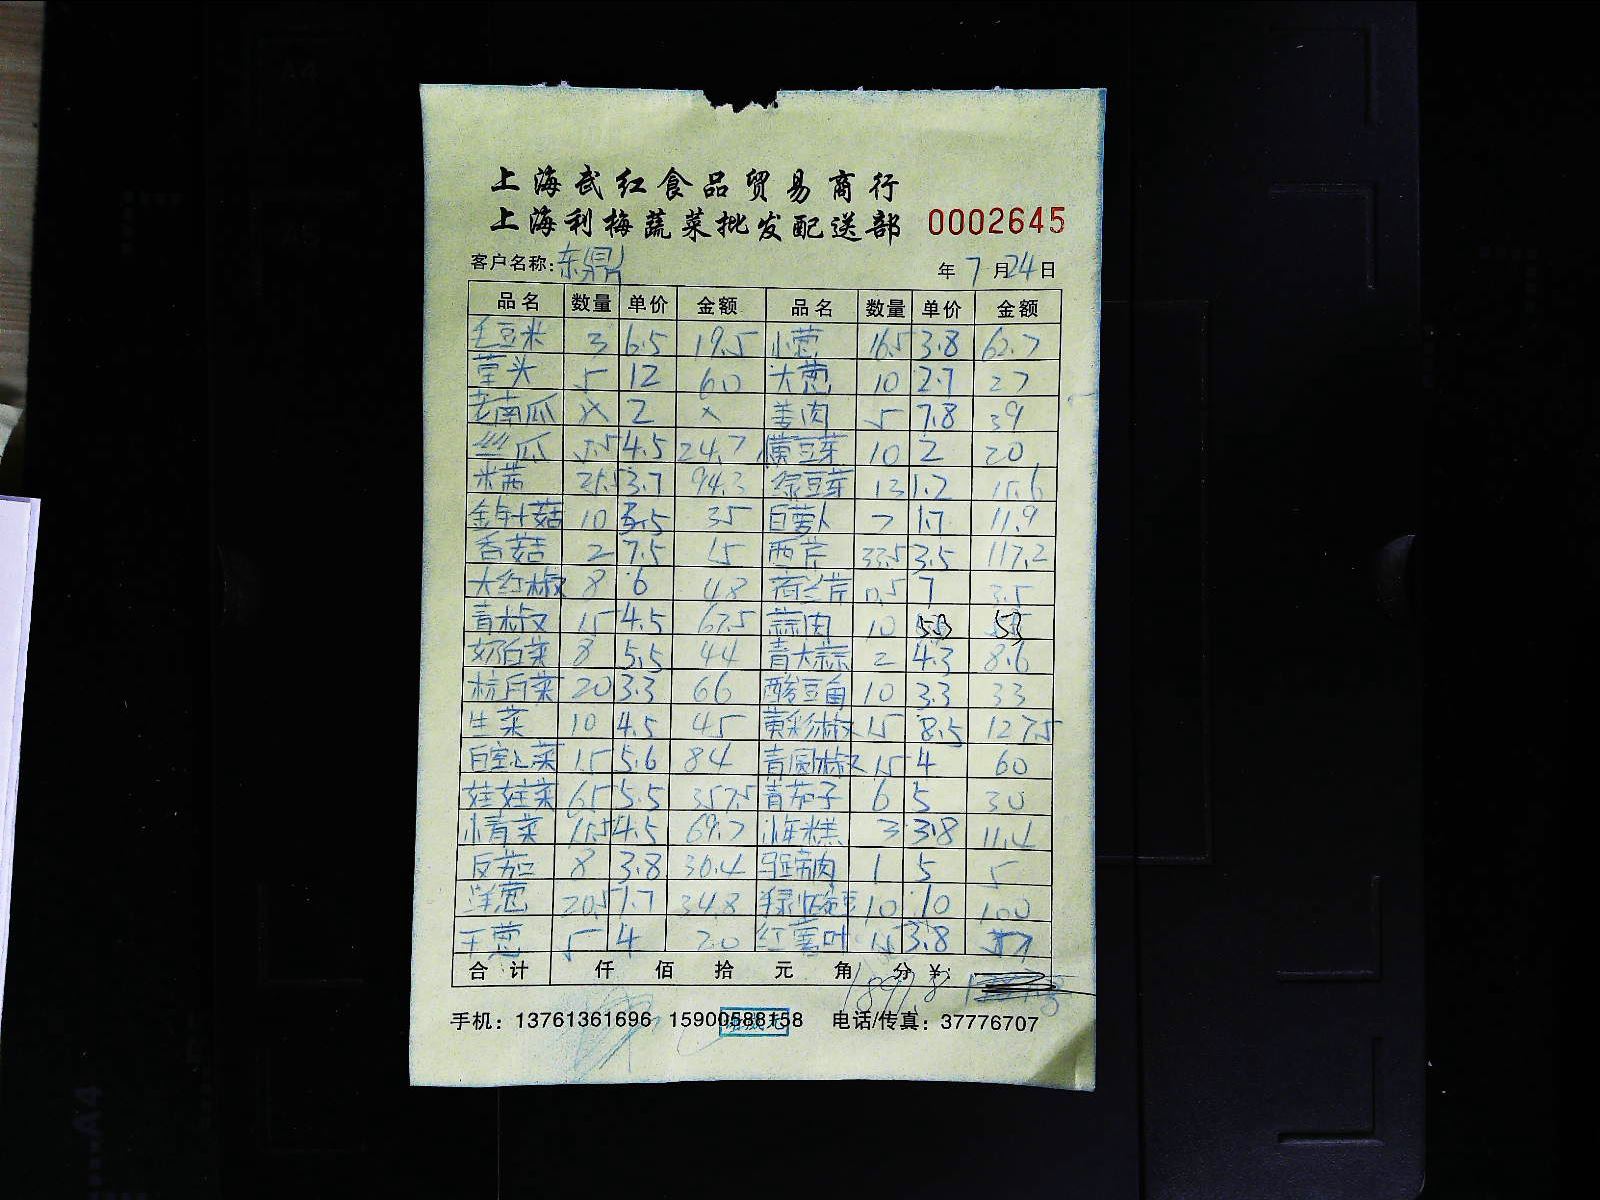 上海武红食品贸易商行
上海利梅蔬菜批发配送部 0002645
客户名称: 东鼎 年 7 月 24 日
品名 数量 单价 金额 品名 数量 单价 金额
毛豆米 3 6.5 19.5 小葱 16.5 3.8 62.7
茔头 5 12 60 大葱 10 2.7 27
老南瓜 X 2 X 姜肉 5 7.8 39
丝瓜 5.5 4.5 24.7 黄豆芽 10 2 20
米茜 25.5 3.7 94.3 绿豆芽 13 1.2 15.6
金针菇 10 3.5 35 白萝卜 7 1.7 11.9
香菇 2 7.5 15 西芹 33.5 3.5 117.2
大红椒 8 6 48 荷兰芹 0.5 7 3.5
青椒 15 4.5 67.5 蒜肉 10 5.3 53
奶白菜 8 5.5 44 青大蒜 2 4.3 8.6
杭白菜 20 3.3 66 酸豆角 10 3.3 33
生菜 10 4.5 45 黄彩椒 15 8.5 127.5
白空心菜 15 5.6 84 青圆椒 15 4 60
娃娃菜 65 5.5 357.5 青茄子 6 5 30
小青菜 15.5 4.5 69.7 水年糕 3 3.8 11.4
反茄 8 3.8 30.4 肉 1 5 5
洋葱 20.5 1.7 34.8 绿 豆 10 10 100
干葱 5 4 20 红 叶 15 3.8 57
合计 仟 佰 拾 元 角 分 ¥: 1897.8
手机: 13761361696 15900588158 电话/传真: 37776707